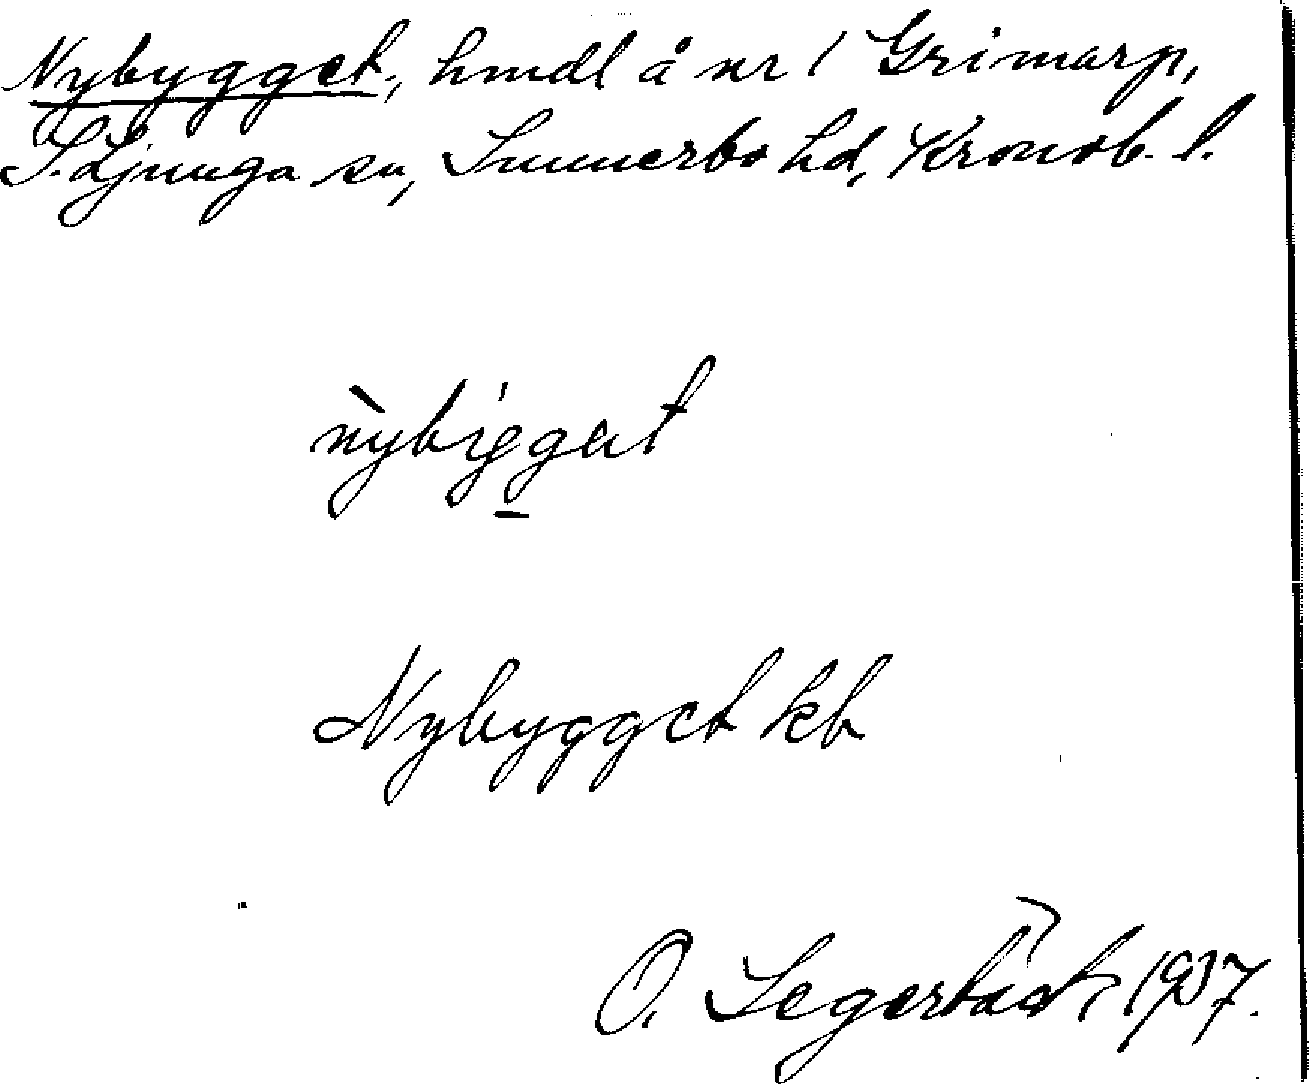 Nybygget, hmdl å nr 1 Grimarp,
S. Ljunga sn, Sunnerbo hd, Kronob. l.
nybiggat
Nybygget kb
O. 1937.